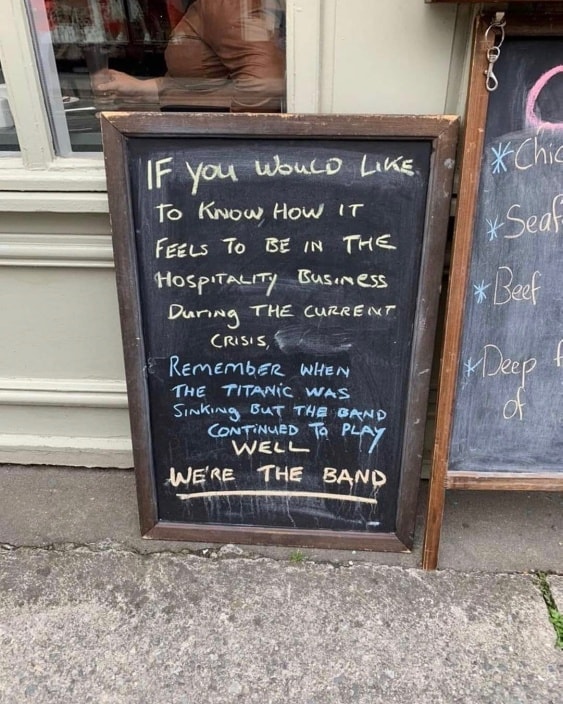 IF YOU WOULD LIKE
TO KNOW HOW IT
FEELS TO BE IN THE
HOSPITALITY BUSINESS
DURING THE CURRENT
CRISIS,
REMEMBER WHEN
THE TITANIC WAS
SINKING BUT THE BAND
CONTINUED TO PLAY
WELL
WE'RE THE BAND
* Beef
* Deep
of